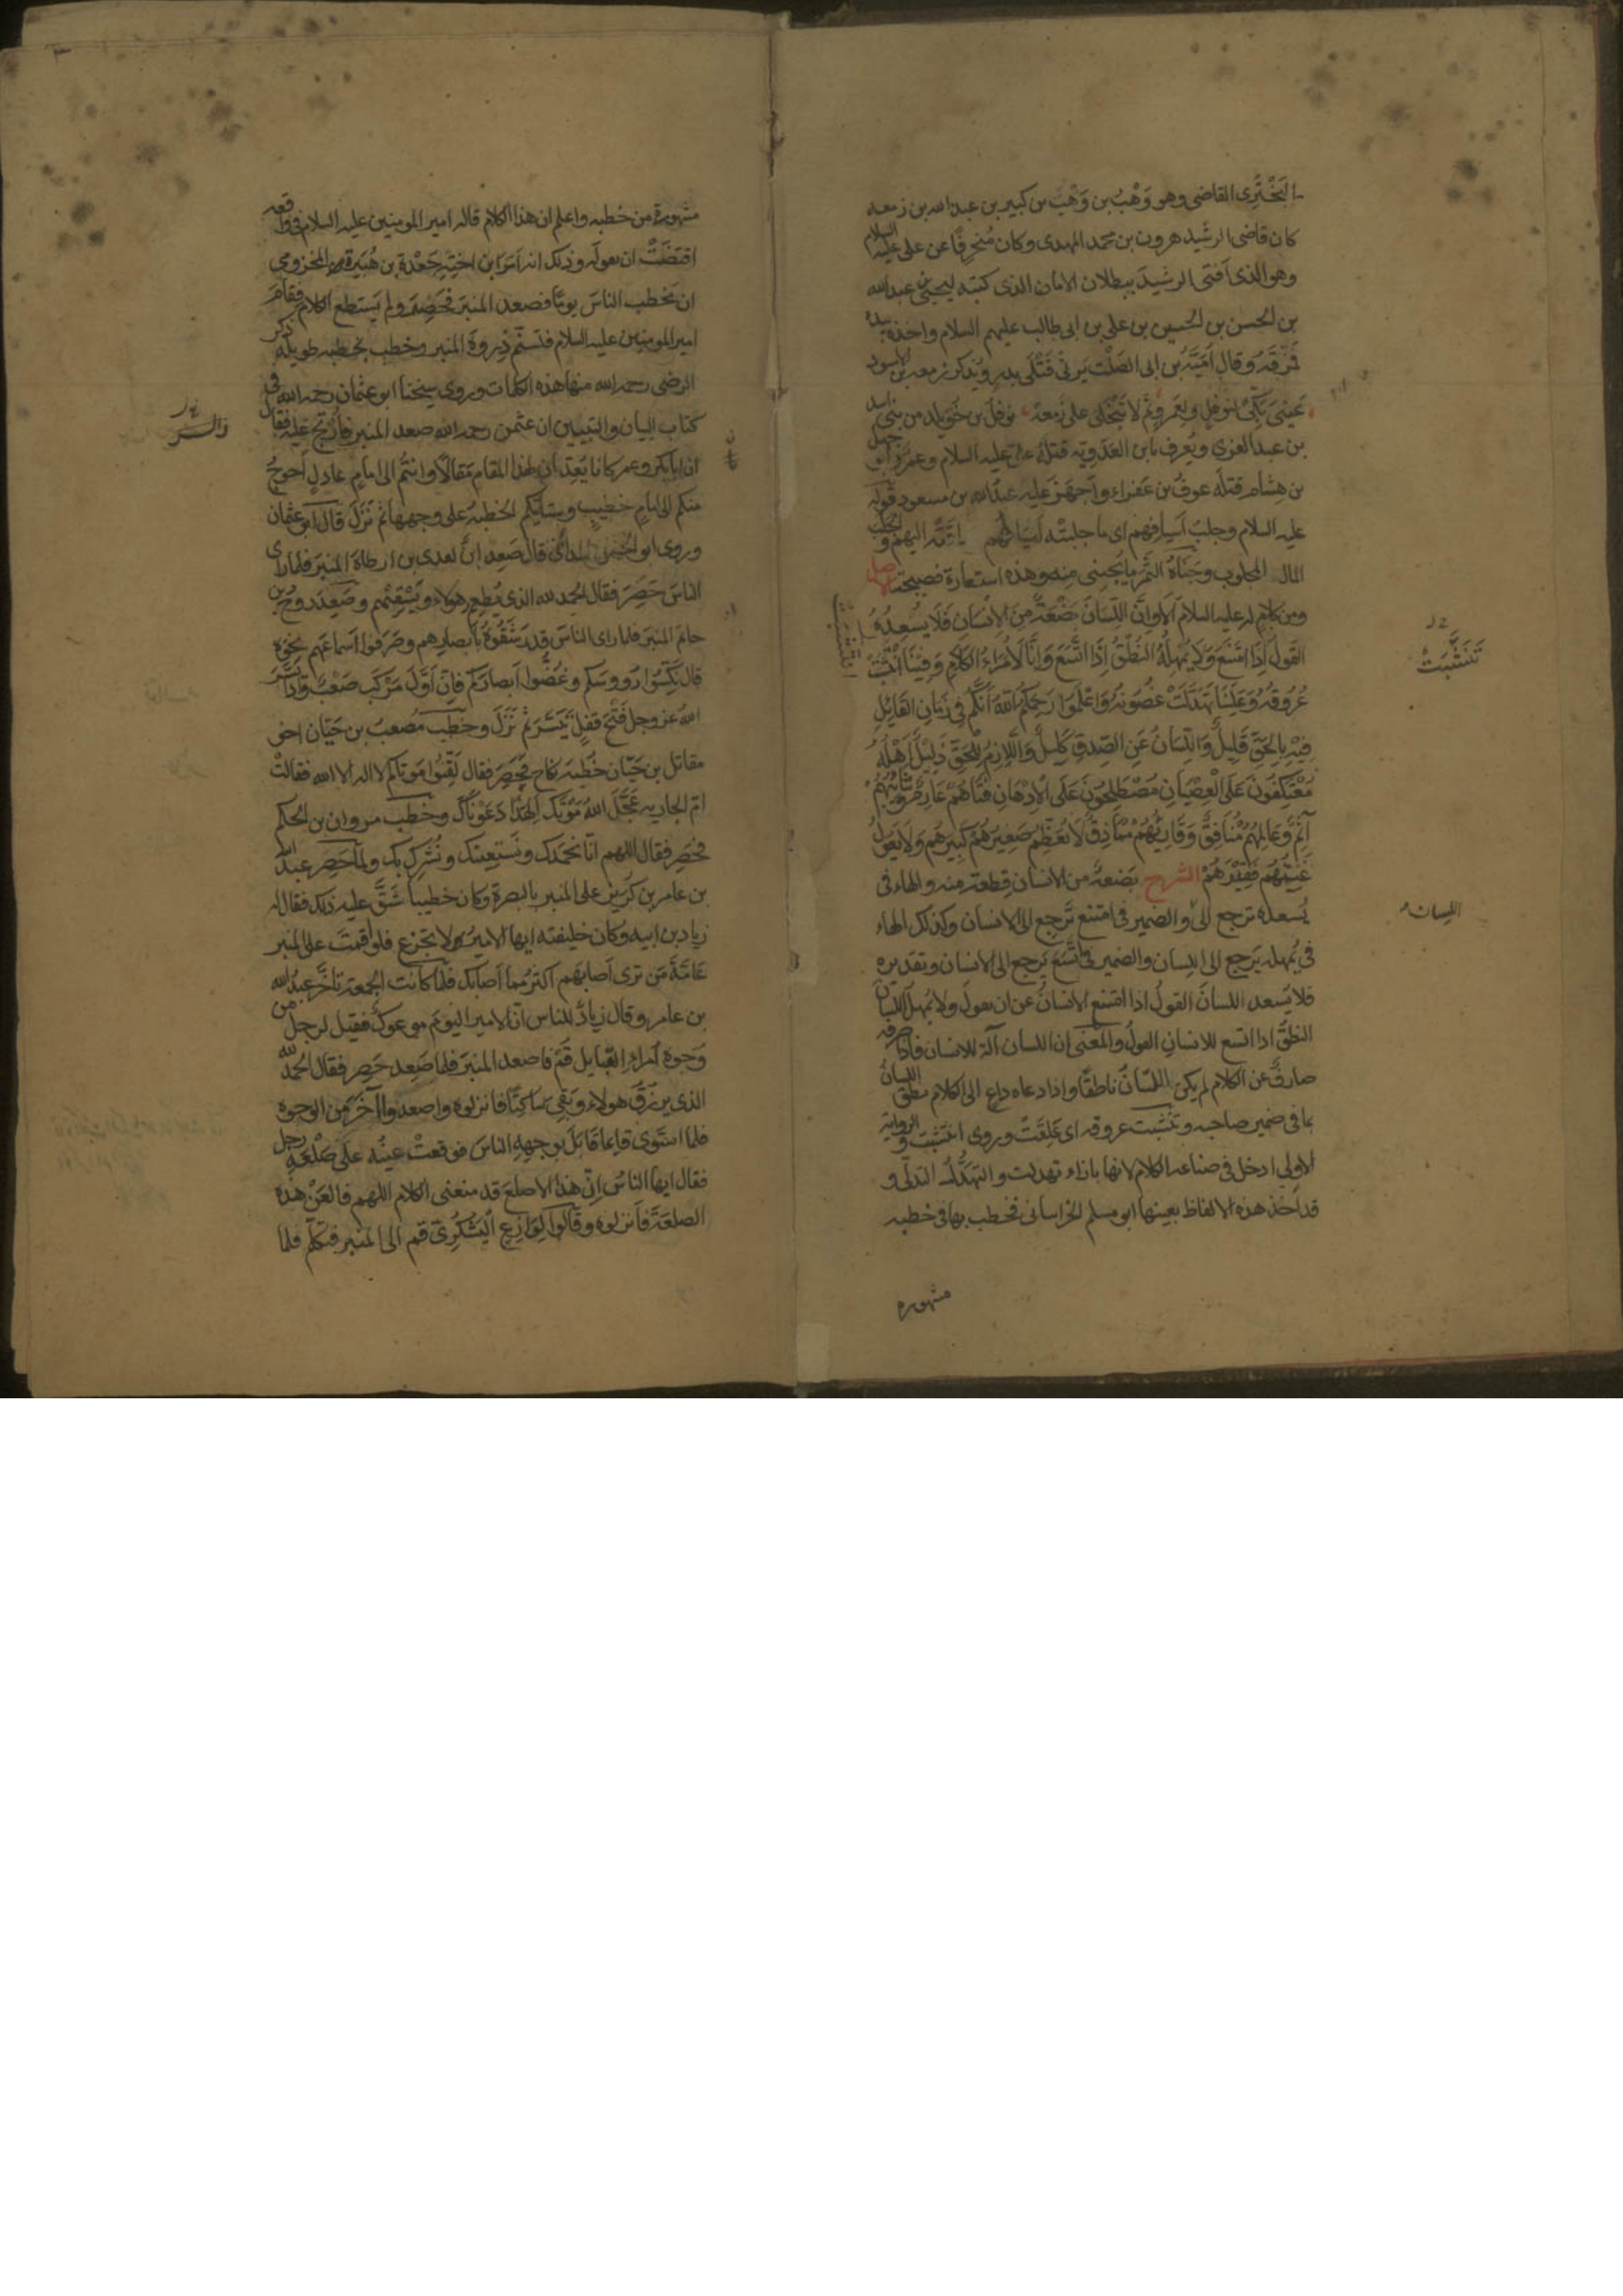 البَخْتَرِى القاضى وهو وَهْبُ بن وَهْب بن كبير بن عبد الله بن زمعه
كان قاضى الرشيد هرون بن محمد المهدى وكان مُنحرِفًا عن على عليه السلام
وهو الذى افتى الرشيدَ ببطلان الامان الذى كتبه ليحيى بن عبد الله
بن الحسن بن الحسين بن على بن ابى طالب عليهم السلام واخذه بيده
فمزقَهُ وقال اُمَيَّةُ بن ابى الصَلْت يَرثى قَتْلَى بدرٍ ويُذكر زمعه بن الاسود
عَينىَ بَكّى لنوفلٍ ولعَمرٍو ثم لا تَبْخَلى على زَمعة نوفل بن خويلد من بنى اسد
بن عبد العزى ويُعرف بابن العَدَوِيّه قتلهُ على عليه السلام وعمرو ابو جهل
بن هشام قتلَه عوفُ بن عفراء واَجهَزَ عليه عبدُ الله بن مسعود قوله
عليه السلام وجلبُ اَسيافِهم اى ما جلبتْه اَسيافُهُم وساقَتْه اليهم والجَلَب
المال المجلوب وجَنَاةُ الثَمَر ما يُجتنى مِنه وهذه استعارة فصيحة الاصل
ومن كلامٍ له عليه السلام اَلاَ وَاِنَّ اللِّسَانَ بَضْعَةٌ مِنَ الاِنْسَانِ فَلاَ يُسْعِدُهُ
القَوْلُ اِذَا امْتَنَعَ وَلاَ يُمْهِلُهُ النُطْقُ اِذَا اتَّسَعَ وَاِنَّا لَأُمَرَاءُ الكَلاَمِ وَفِينَا انْتَشَبَتْ
عُرُوقُهُ وَعَلَيْنَا تَهَدَّلَتْ غُصُونُهُ وَاعْلَمُوا رَحِمَكُمُ اللهُ اَنَّكُمْ فِى زَمَانٍ القَايِلُ
فِيْهِ بِالحَقِّ قَلِيلٌ وَاللِّسَانُ عَنِ الصِّدقِ كَلِيلٌ وَاللاَّزِمُ لِلحَقِّ ذَلِيْلٌ اَهْلُهُ
مُعْتَكِفُونَ عَلَى الْعِصْيَانِ مُصْطَلِحُوْنَ عَلَى الاِدْهَانِ فَتَاهُمْ عَارِمٌ وَشَائِبُهُمْ
آثِمٌ وَعَالِمُهُمْ مُنَافِقٌ وَقَارِئُهُمْ مُمَاذِقٌ لاَ يُعَظِّمُ صَغِيرُهُمْ كَبِيرَهُمْ وَلاَ يَعُولُ
غَنِيُّهُم فَقِيْرَهُمْ الشرح بَضعةٌ من الانسان قِطعة منه والهاء فى
يُسعده ترجع الى والضمير فى امتنع تَرجع الى الانسان وكذلك الهاء
فى يُمهله يَرجع الى اللسان والضمير فى اتَّسَعَ يَرجع الى الانسان وتقديره
فلا يُسعد اللسانَ القولُ اذا امتنع الانسانُ عن ان يقولَ ولا يُمهلُ اللسانَ
النطقُ اذا اتسع للانسانِ القولُ والمعْنى ان اللسان آلة للانسان فاذا صرفه
صارفٌ عن الكلام لم يكن اللسانُ ناطقًا واذا دعاه داعٍ الى الكلام نطق اللسانُ
بما فى ضمير صاحبه وتنشبت عروقه اى عَلِقَتْ وروى انتشبت والرواية
الاولى ادخل فى صناعة الكلام لانها بازاء تهدلت والتهَدُّلُ التدلّى و
قد اَخَذ هذه الالفاظ بعينها ابو مسلم الخراسانى فخطب بها فى خطبه
مشهوره
تَنَشَّبَتْ
اللسان
انتشبت
مشهورة من خُطبه واعلم ان هذا الكلام قاله امير المومنين عليه السلام فى واقعه
اقتضَتْ ان يقوله وذلك انه اَمَرَ ابن اختِهِ جَعْدَة بن هُبَيرة المخزومى
ان يخطب الناسَ يومًا فصعد المنبرَ فحَصِرَ ولم يَستطع الكلام فقامَ
امير المومنين عليه السلام فتسنّم ذِروةَ المنبر وخطب بخطبه طويله ذكر
الرضى رحمه الله منها هذه الكلمات وروى شيخنا ابو عثمان رحمه الله فى
كتاب البيان والتبيين ان عثمن رحمه الله صعد المنبر فاُرتِجَ عليه فقال
ان ابابكر وعمر كانا يُعِدّان لهذا المقام مَقالاً وانتُم الى امامٍ عادلٍ اَحوجُ
منكم الى امامٍ خطيبٍ وستأتيكم الخطبهُ على وجهها ثم نَزَلَ قال ابو عثمان
وروى ابو الحسن المدائنى قال صَعِدَ ابنٌ لعدى بن ارطاة المنبرَ فلما راى
الناسَ حَصِرَ فقال الحمد لله الذى يُطعِم هولاء ويَسْقِيْهم وصَعِدَ روحُ بن
حاتم المنبرَ فلما راى الناسَ قد رَشَقُوهُ بابصارِهم وصَرَفوا اَسماعَهم نحوَه
قال نَكِّسُوا رُووسَكم وغُضُّوا اَبصارَكم فاِنّ اَوَّلَ مَركَبٍ صَعْبٌ واذا يَسَّرَ
اللهُ عز وجل فَتْحَ قفلٍ تَيَسَّرَ ثم نَزَلَ وخطب مُصعبُ بن حَيّان اخى
مقاتل بن حَيّان خُطبةَ نكاحٍ فحَصِرَ فقال لَقِّنُوا مَوتاكم لا اله الا الله فقالتْ
امّ الجاريه عَجَّلَ اللهُ مَوتَكَ اَلِهذا دَعَوْنَاكَ وخطب مروان بن الحكم
فحَصِرَ فقال اللهم انّا نحمَدك ونَستعِينك ونُشرِك بك ولما حَصِر عبدُ الله
بن عامر بن كُرَيز على المنبر بالبصرة وكان خطيبا شَقَّ عليه ذلك فقال له
زياد بن ابيه وكان خليفته ايها الامير لا تجزع فلو اَقمتَ على المنبر
عامّةَ مَن ترى اَصابَهم اكثرُ مما اَصابَك فلمّا كانت الجُمعة تأخَّرَ عبدُ الله
بن عامر وقال زيادٌ للناس انّ الامير اليوْمَ موعوكٌ فقيل لرجل من
وُجوه اُمراءِ القبايل قُمْ فاصعد المنبَرَ فلما صَعِد حَصِر فقال الحَمدُ لله
الذى يرزُق هولاءِ وبَقِى ساكِتًا فانزلوه واصعدوا آخَرَ من الوجوه
فلما استَوى قايما قابَلَ بوجهِهِ الناسَ فوقعتْ عينُه على صَلْعَةِ رجل
فقال ايها الناسُ اِنّ هذا الاصلعَ قد منعنى الكلام اللهم فالعَنْ هذه
الصلعَةَ فاَنزلوه وقالوا لِوازِعٍ اليَشْكُرِىّ قم الى المنبر فتكلّم فلما